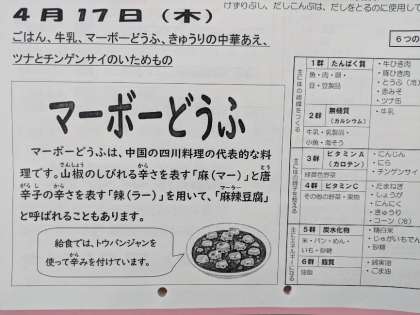 けずりぶし、だしこんぶは、だしをとるのに使用して
4月17日（木）
ごはん、牛乳、マーボーどうふ、きゅうりの中華あえ、
ツナとチンゲンサイのいためもの
マーボーどうふ
マーボーどうふは、中国の四川料理の代表的な料
理です。山椒のしびれる辛さを表す「麻（マー）」と唐
辛子の辛さを表す「辣（ラー）」を用いて、「麻辣豆腐」
と呼ばれることもあります。
給食では、トウバンジャンを
使って辛みを付けています。
6つの
1群 たんぱく質
魚・肉・卵・
豆・豆製品
・牛ひき肉
・豚ひき肉
・とうふ（冷）
・赤みそ
・ツナ缶
2群 無機質
（カルシウム）
牛乳・乳製品・
小魚・海そう
・牛乳
3群 ビタミンA
（カロテン）
緑黄色野菜
・にんじん
・にら
・チンゲンサイ
4群 ビタミンC
その他の野菜・果物
・たまねぎ
・しょうが
・にんにく
・きゅうり
・コーン（冷）
5群 炭水化物
米・パン・めん・
いも・砂糖
・精白米
・じゃがいもでん
・砂糖
6群 脂質
油脂
・ごま油